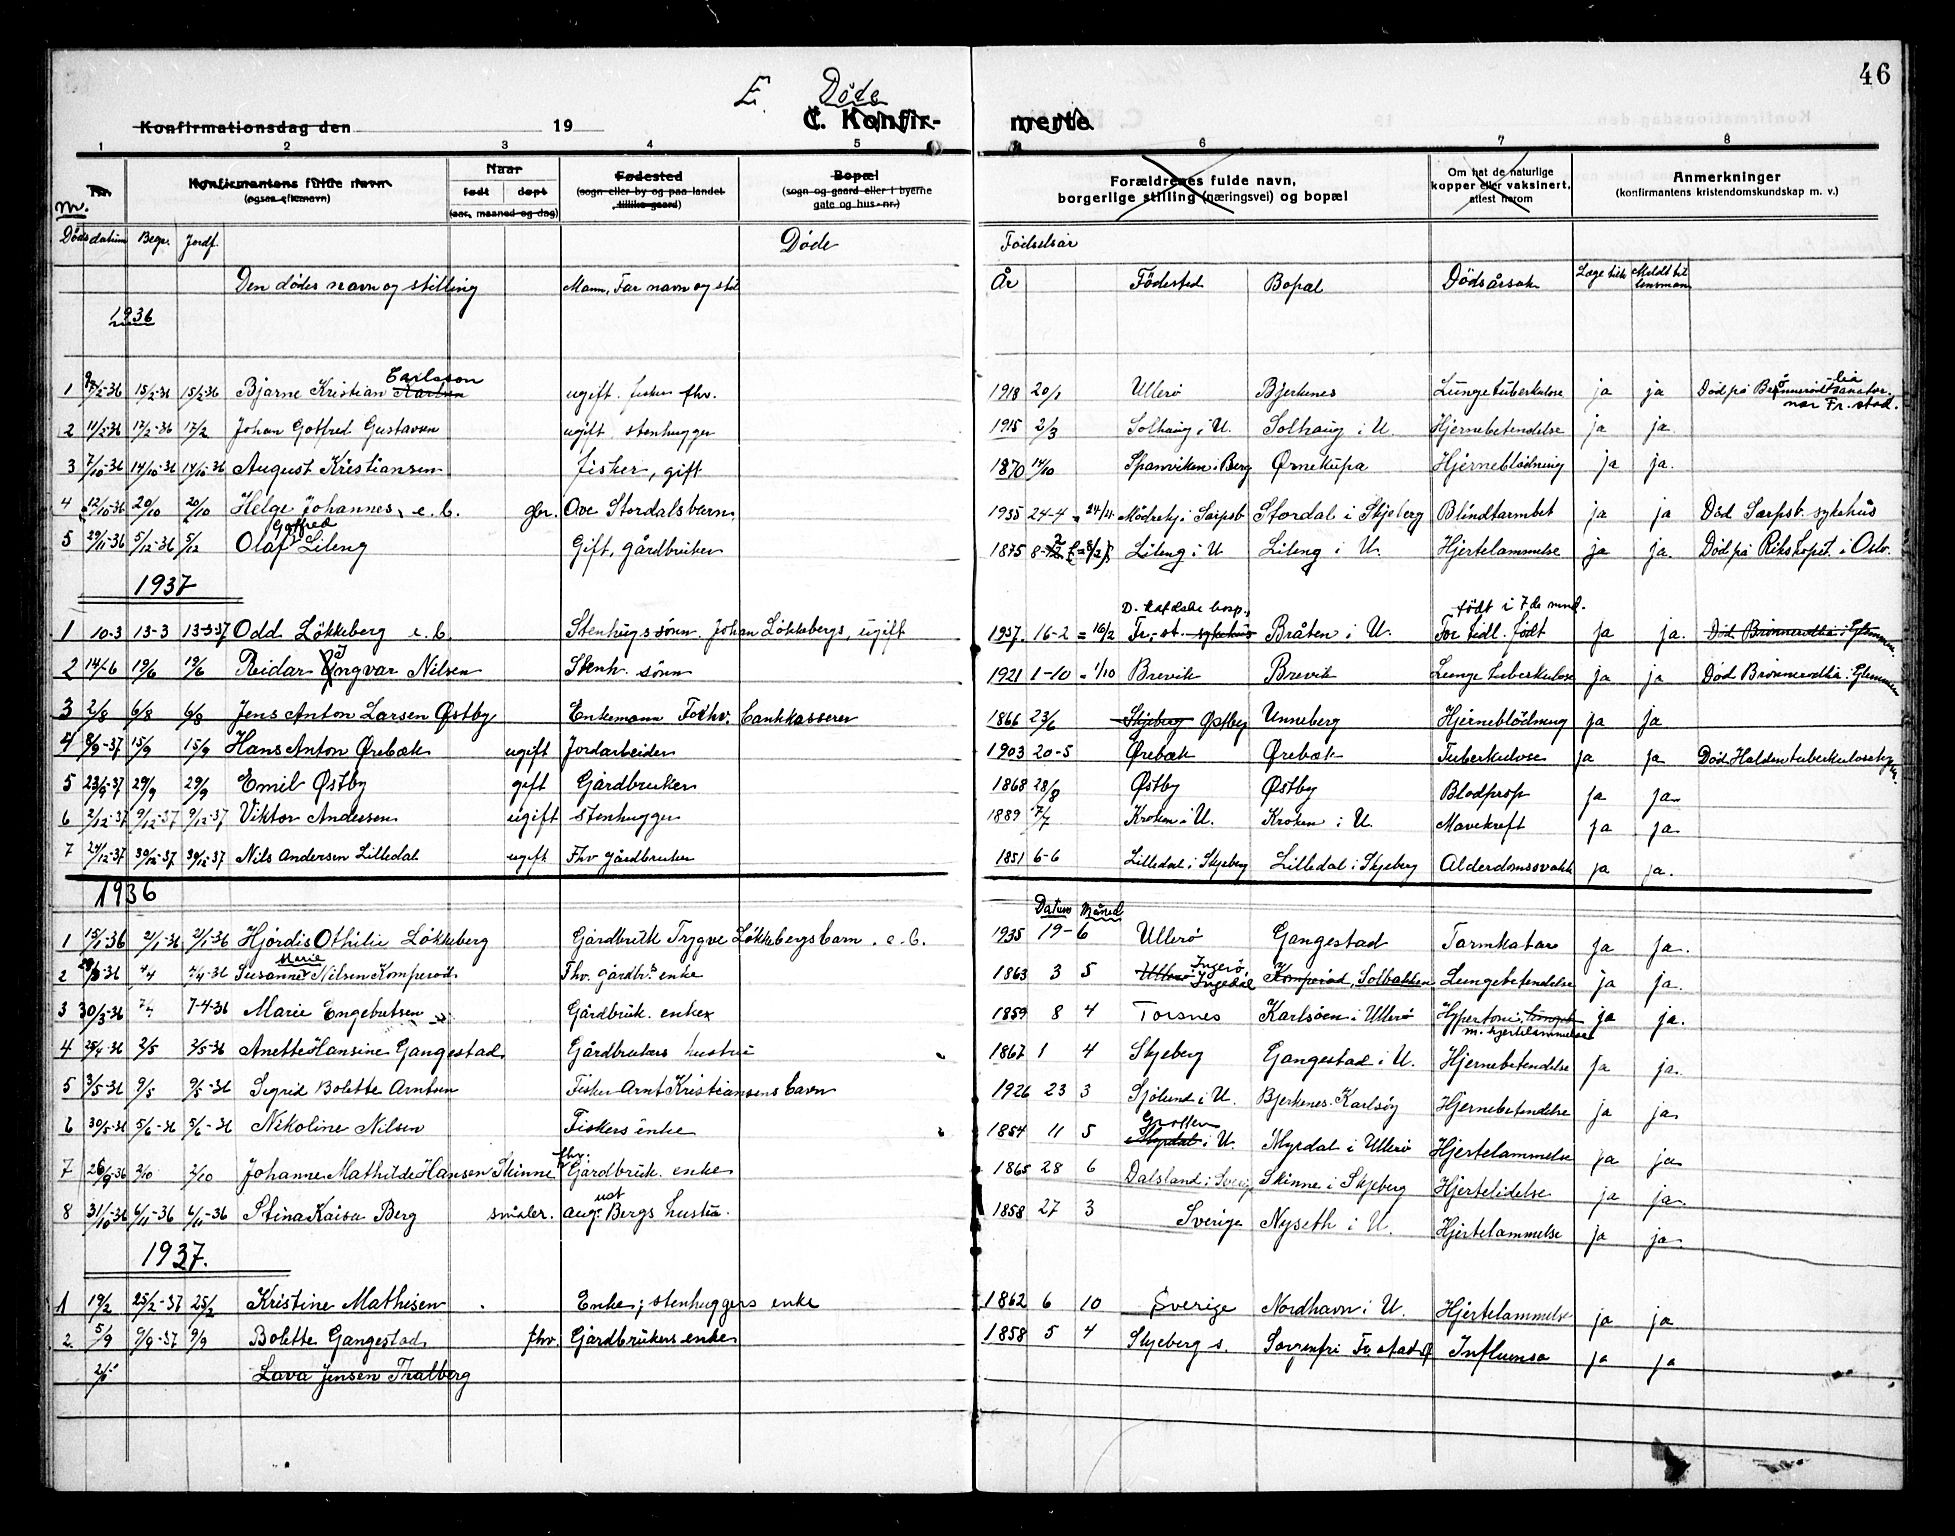 46
E. Døde
Konfirmationsdag den 19 C. Konfir- merte
1 2 3 4 5 6 7 8
Nr. Konfirmantens fulde navn Naar Fødested Bopæl Forældrenes fulde navn, Om hat de naturlige Anmerkninger
(ogsaa efternavn) født døpt (sogn eller by og paa landet (sogn og gaard eller i byerne borgerlige stilling (næringsvei) og bopæl kopper eller vaksinert, (konfirmantens kristendomskundskap m. v.)
m. (aar, maaned og dag) tillike gaard) gate og hus-nr.) attest herom
Døds datum Begr. Jordf. Døde Fødselsår
Den dødes navn og stilling Mann, Far navn og stil År Födested Bopæl Dödsårsak Læge tilk. Meldt til lensmann
1936
Carlsson
1 9/2-36 15/2-36 15/2-36 Bjarne Kristian Karlsen ugift. fisker fhv. 1918 20/1 Ullerø Bjerkenes Lungetuberkulose ja ja Död på Brönnerödlia sanator. nær Fr.stad.
2 11/2-36 17/2-36 17/2 Johan Gotfred Gustavsen ugift stenhugger 1915 2/3 Solhaug i U. Solhaug i U. Hjernebetendelse ja ja.
3 7/10-36 14/10-36 14/10-36 August Kristiansen fisker, gift 1870 14/10 Spanviken i Berg Ørnekupa Hjerneblödning ja ja.
4 12/10-36 20/10 20/10 Helge Johannes, e. b. gbr. Ove Stordalsbarn. 1935 24-4 = 24/4 Mödrehj. i Sarpsb. Stordal i Skjeberg Blindtarmbet ja ja Död Sarpsb. sykehus
Gotfred
5 29/11-36 5/12-36 5/12 Olaf Lileng Gift, gårdbruker 1875 8-2 (=8/2) Lileng i U Lileng i U. Hjertelammelse ja ja. Död på Rikshospt. i Oslo.
1937
født i 7de mnd.
1 10-3 13-3 13-3-37 Odd Løkkeberg e. b. Stenhugs sönn. Johan Løkkebergs, ugift 1937. 16-2 = 16/2 Fr.-st. sykehus Bråten i U. For tidl. født ja ja. Död Brönnerödlia i Glemmen.
2 14-6 19/6 19/6 Reidar Yngvar Nilsen Stenh. sönn 1921 1-10 = 1/10 Brevik Brevik Lunge tuberkulose ja ja Död Brönnerödlia i Glemmen
3 2/8 6/8 6/8 Jens Anton Larsen Østby Enkemann Forhv. bankkasserer 1866 23/6 Skjeberg Østby Unneberg Hjerneblödning ja ja
4 8/9-37 15/9 15/9 Hans Anton Ørebæk ugift Jordarbeider 1903 20-5 Ørebæk Ørebæk Tuberkulose ja ja Död Halden tuberkulosehj.
5 23/9-37 29/9 29/9 Emil Østby gift Gårdbruker 1868 28/8 Østby Østby Blodprop ja ja
6 2/12-37 9/12-37 9/12-37 Viktor Andersen ugift stenhugger 1889 7/7 Kroken i U. Kroken i U. Mavekreft ja ja.
7 24/12-37 30/12-37 30/12-37 Nils Andersen Lilledal ugift Fhv gårdbruker 1851 6-6 Lilledal i Skjeberg Lilledal i Skjeberg Alderdomssvakk ja ja.
1936
Datum Måned
1 15/1-36 21/1-36 21/1-36 Hjördis Othilie Løkkeberg Gårdbruk Trygve Løkkebergs barn. e. b. 1935 19-6 Ullerö Gangestad Tarmkatar ja ja.
Marie
2 29/3-36 4/4 4/4-36 Susanne Nilsen Komperød Fhv. gårdbr. enke 1863 3 5 Ullerø Ingerö, Ingedal Komperød, Solbakken Lungebetendelse ja ja.
3 30/3-36 7/4 7-4-36 Marie Engebretsen Gårdbruk. enke 1859 8 4 Torsnes Karlsøen i Ullerø Hypertoni m. hjertelammelse ja ja.
4 25/4-36 2/5 2/5-36 Anette Hansine Gangestad Gårdbrukers hustru 1867 1 4 Skjeberg Gangestad i U. Hjernebetendelse ja ja.
5 3/5-36 9/5 9/5-36 Sigrid Bolette Arntsen Fisker Arnt Kristiansens barn 1926 23 3 Sjölund i U. Bjerkenes. Karlsøy Hjernebetendelse ja ja
6 30/5-36 5/6-36 5/6-36 Nikoline Nilsen Fiskers enke 1854 11 5 Myrdal i U. Myrdal i Ullerö Hjertelammelse ja ja
fhv.
7 26/9-36 2/10 2/10 Johanne Mathilde Hansen Skinne Gårdbruk. enke 1865 28 6 Dalsland i Sverige Skinne i Skjeberg Hjertelidelse ja ja.
8 31/10-36 6/11-36 6/11-36 Stina Kaisa Berg smaler. august Bergs hustru. 1858 27 3 Sverige Nyseth i U. Hjertelammelse ja ja.
1937.
1 19/2 25/2-37 25/2 Kristine Mathisen Enke; stenhuggers enke 1862 6 10 Sverige Nordhavn i U. Hjertelammelse ja ja
2. 5/9 9/9-37 9/9 Bolette Gangestad fhv. Gårdbrukers enke 1858 5 4 Skjeberg s. Sorgenfri Fr.stad Ø Influensa ja ja
2/5 Lava Jensen Thalberg